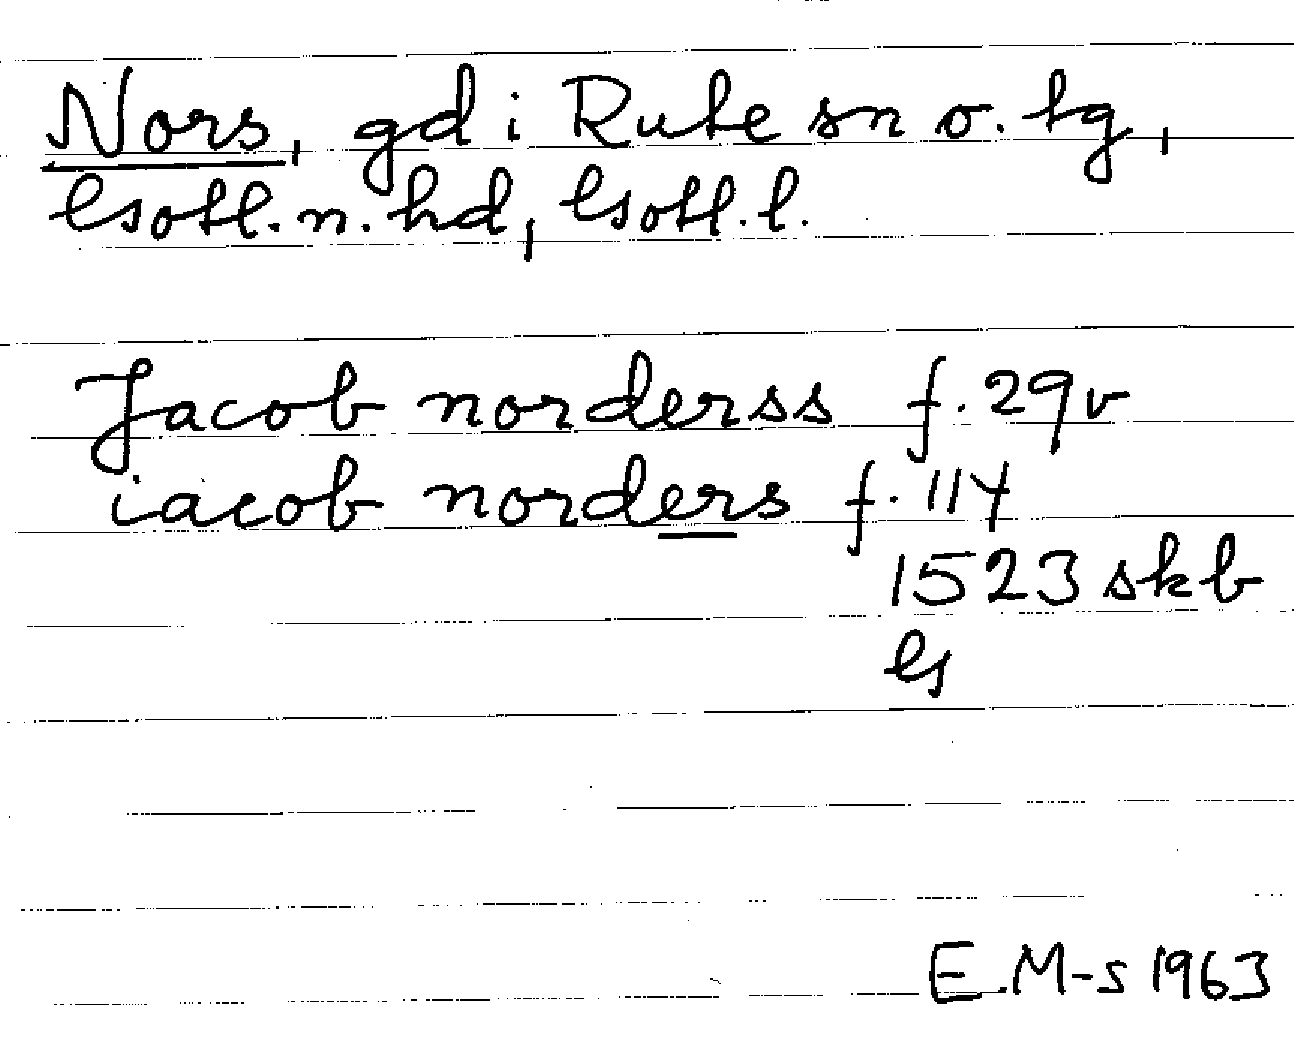 Nors, gd i Rute sn o. tg,
Gotl. n. hd, Gotl. l.
Jacob norderss f. 29v
iacob norders f. 114
1523 skb
G
E. M-s 1963